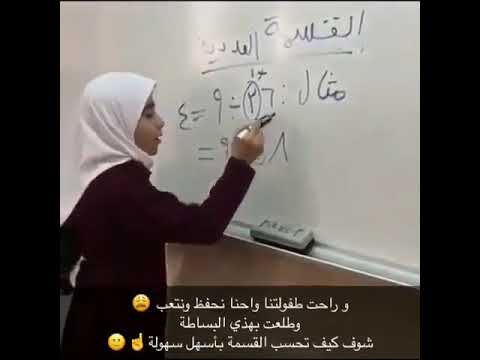 القسمة العددية
+١
مثال : ٣٦ ÷ ٩ = ٤
و راحت طفولتنا واحنا نحفظ ونتعب 😩
وطلعت بهذي البساطة
شوف كيف تحسب القسمة بأسهل سهولة☝️🙂